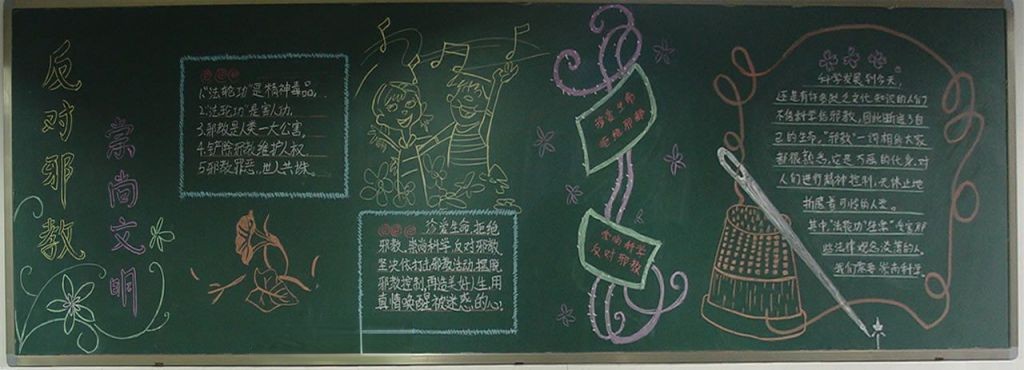 反对邪教
崇尚文明
1."法轮功"是精神毒品,
2."法轮功"是害人功,
3.邪教是人类一大公害,
4.铲除邪教,维护人权
5.邪教罪恶,世人共诛。
珍爱生命,拒绝
邪教,崇尚科学,反对邪教,
坚决依打击邪教活动,摆脱
邪教控制,再造美好人生,用
真情唤醒被迷惑的心!
珍爱生命
拒绝邪教
崇尚科学
反对邪教
科学发展到今天,
还是有许多缺乏文化知识的人们
不信科学信邪教,因此断送了自
己的生命,"邪教"一词相信大家
都很熟悉,它是不痛的代名,对
人们进行精神控制,无休止地
折磨着可怜的人类。
其中"法轮功"
些法律观念淡薄的人,
我们需要崇尚科学